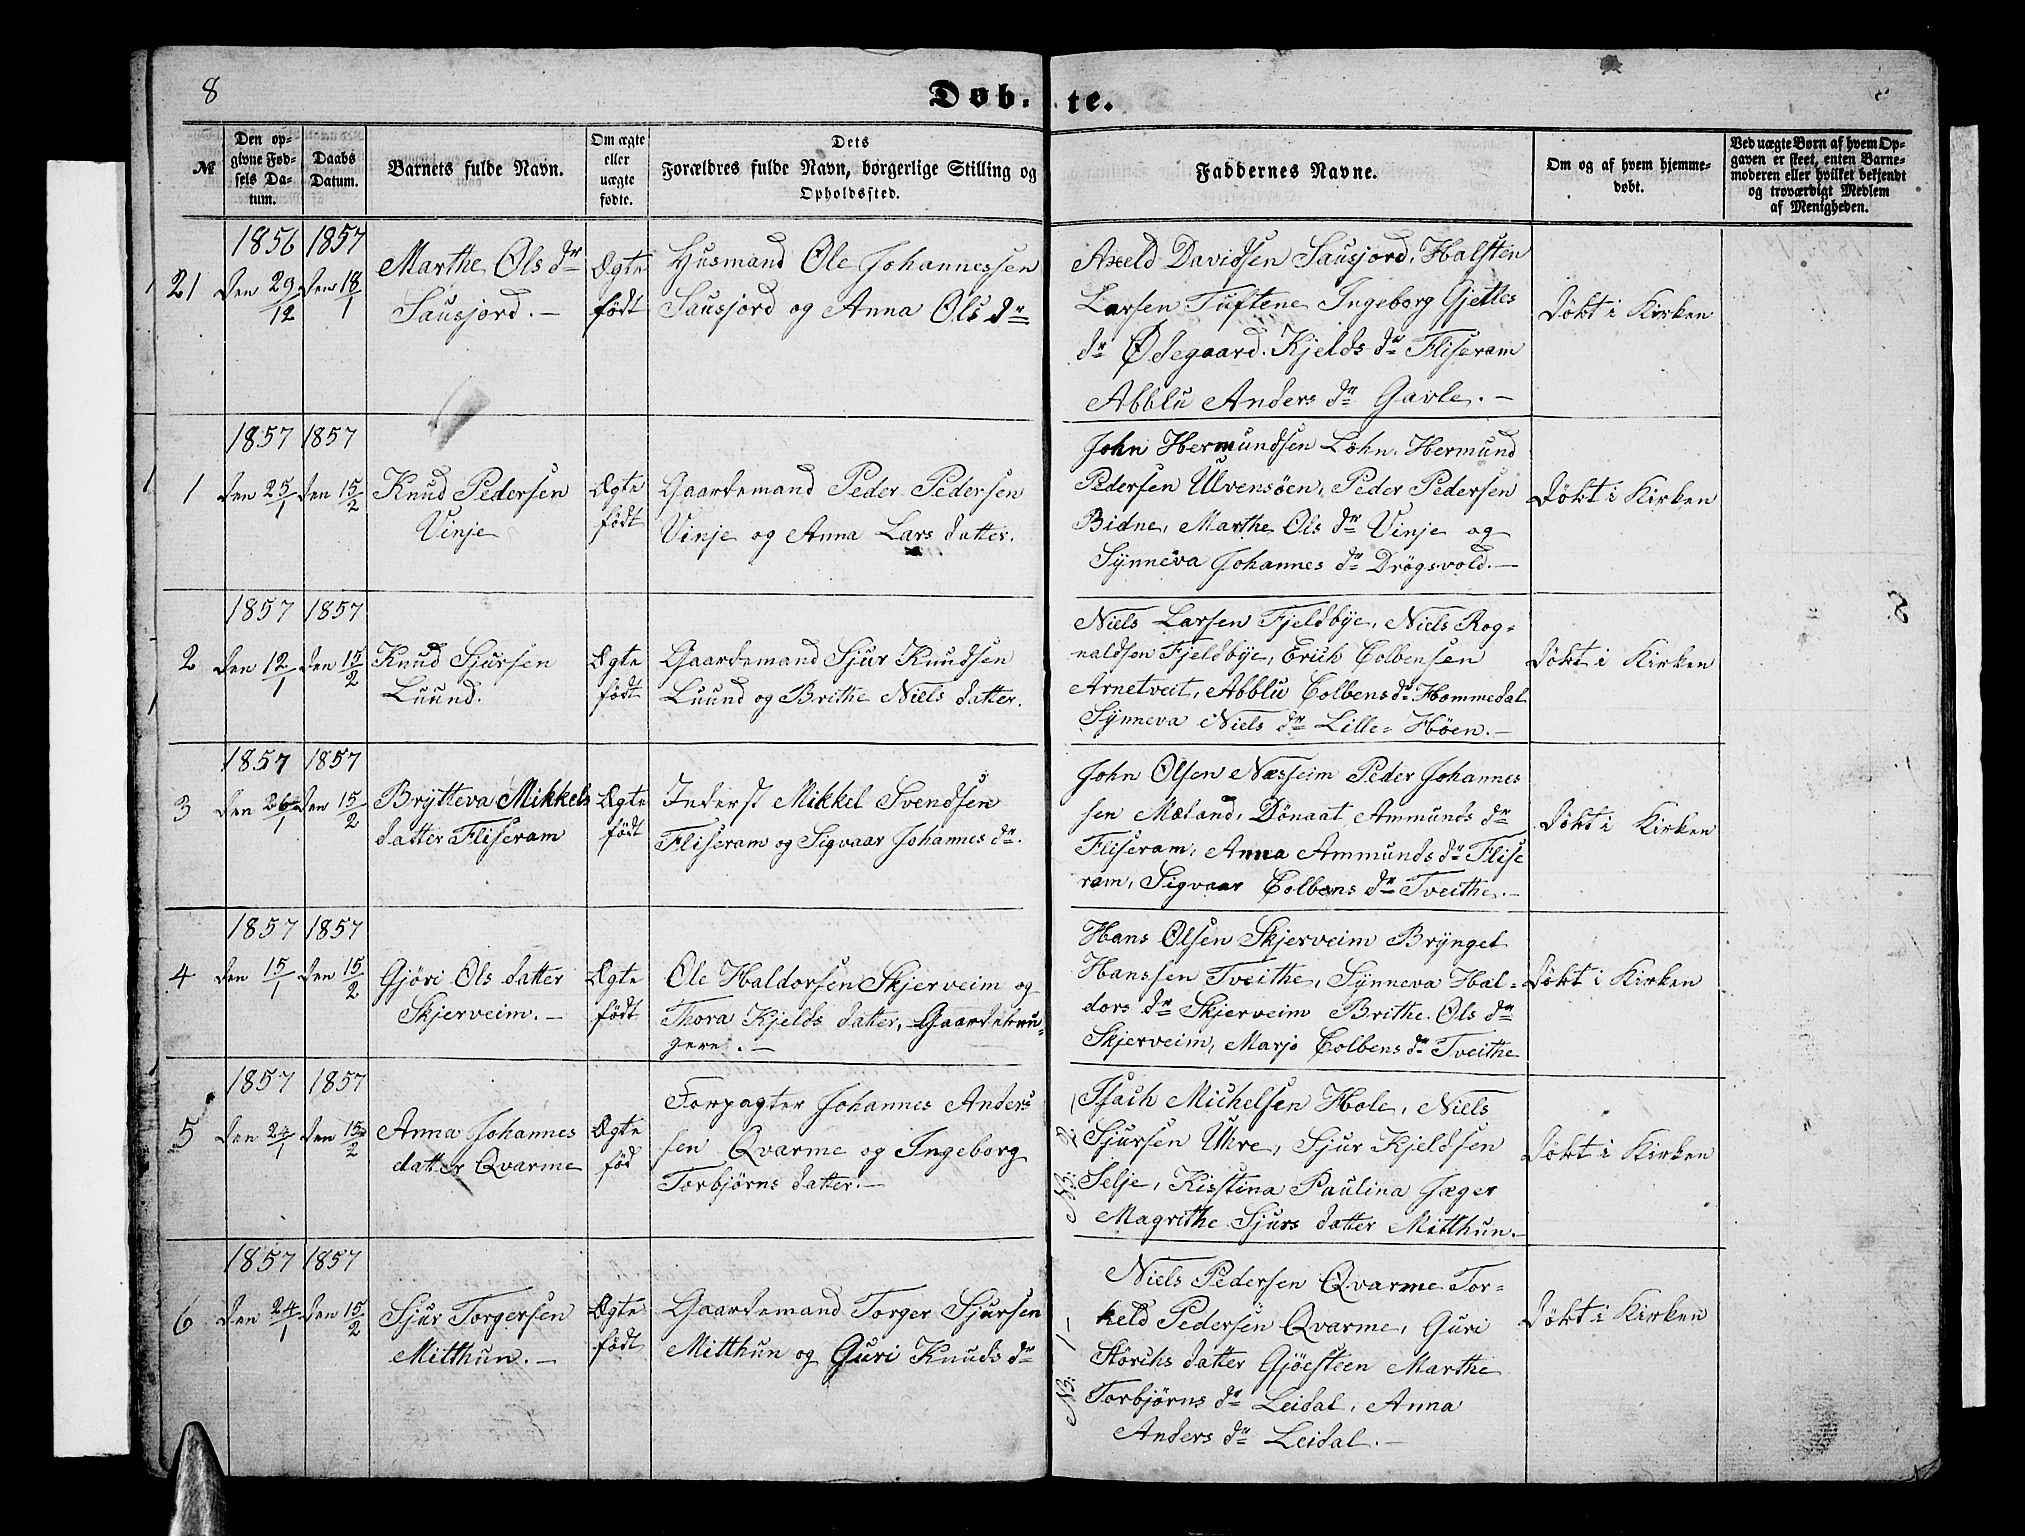 8
Døb. te.
№
Den op-
givne Fød-
sels Da-
tum.
Daabs
Datum.
Barnets fulde Navn.
Om ægte
eller
uægte
fødte.
Dets
Forældres fulde Navn, borgerlige Stilling og
Opholdssted.
Faddernes Navne.
Om og af hvem hjemme-
døbt.
Ved uægte Børn af hvem Op-
gaven er skeet, enten Barne-
moderen eller hvilket bekjendt
og troværdigt Medlem
af Menigheden.
21
1856
den 29/12
1857
den 18/1
Marthe Ols dr
Sausjord. —
Ægte
født
Husmand Ole Johannessen
Sausjord og Anna Ols dr
Axeld Davidsen Sausjord, Halsten
Larsen Tuftene Ingeborg Gjettes
dr Ødegaard. Kjelds dr Fliseram
Abblu Anders dr Gavle. —
Døbt i Kirken
1
1857
den 25/1
1857
den 15/2
Knud Pedersen
Vinje
Ægte
født
Gaardemand Peder Pedersen
Vinje og Anna Lars datter.
John Hermundsen Løhn. Hermund
Pedersen Ulvensöen, Peder Pedersen
Bidne, Marthe Ols dr Vinje og
Synneva Johannes dr Drøgsvold. —
Døbt i Kirken
2
1857
den 12/1
1857
den 15/2
Knud Sjursen
Luund.
Ægte
født
Gaardemand Sjur Knudsen
Luund og Brithe Niels datter.
Niels Larsen Fjeldbye, Niels Rog-
naldsen Fjeldbye, Erich Colbensen
Arnetveit, Abblu Colbens dr Hommedal
Synneva Niels dr Lille- Høen. —
Døbt i Kirken
3
1857
den 26/1
1857
den 15/2
Brytteva Mikkels
datter Fliseram
Ægte
født
Inderst Mikkel Svendsen
Fliseram og Sigvaar Johannes dr.
John Olsen Næsheim Peder Johannes
sen Mæland, Dönaat Ammunds dr
Fliseram, Anna Ammunds dr Flise
ram, Sigvaar Colbens dr Tveithe. —
Døbt i Kirken
4
1857
den 15/1
1857
den 15/2
Gjøri Ols datter
Skjerveim. —
Ægte
født
Ole Haldorsen Skjerveim og
Thora Kjelds datter, Gaardebru-
gere. —
Hans Olsen Skjerveim Brynget
Hanssen Tveithe, Synneva Hal-
dors dr Skjerveim Brithe Ols dr
Skjerveim, Marjo Colbens dr Tveithe
Døbt i Kirken
5
1857
den 24/1
1857
den 15/2
Anna Johannes
datter Qvarme
Ægte
fød
Forpagter Johannes Anders
sen Qvarme og Ingeborg
Torbjørns datter. —
NB: 2
Isach Michelsen Hole, Niels
Sjursen Ukre, Sjur Kjeldsen
Selje, Kisstina Paulina Jæger
Magrithe Sjurs datter Mitthun. —
Døbt i Kirken
6
1857
den 24/1
1857
den 15/2
Sjur Torgersen
Mitthun. —
Ægte
født
Gaardemand Torger Sjursen
Mitthun og Guri Knuds dr
NB: 1
Niels Pedersen Qvarme Tor-
keld Pedersen Qvarme, Guri
Störchs datter Gjøesteen Marthe
Torbjørns dr Leidal, Anna
Anders dr Leidal. —
Døbt i Kirken